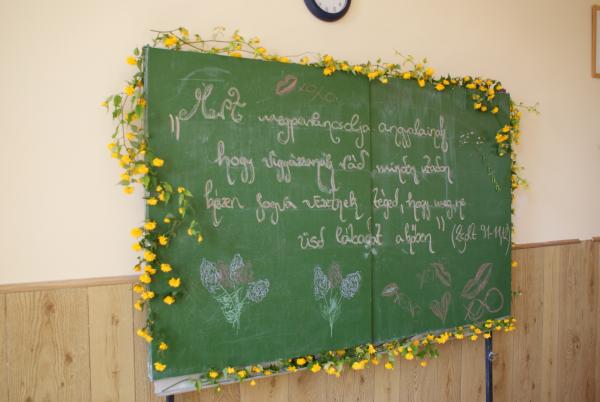 "Mert megparancsolja angyalainak
hogy vigyázzanak rád minden utadon
kézen fogva vezetnek téged, hogy meg ne
üsd lábadat a kőben" (Zsolt 91-11,12)